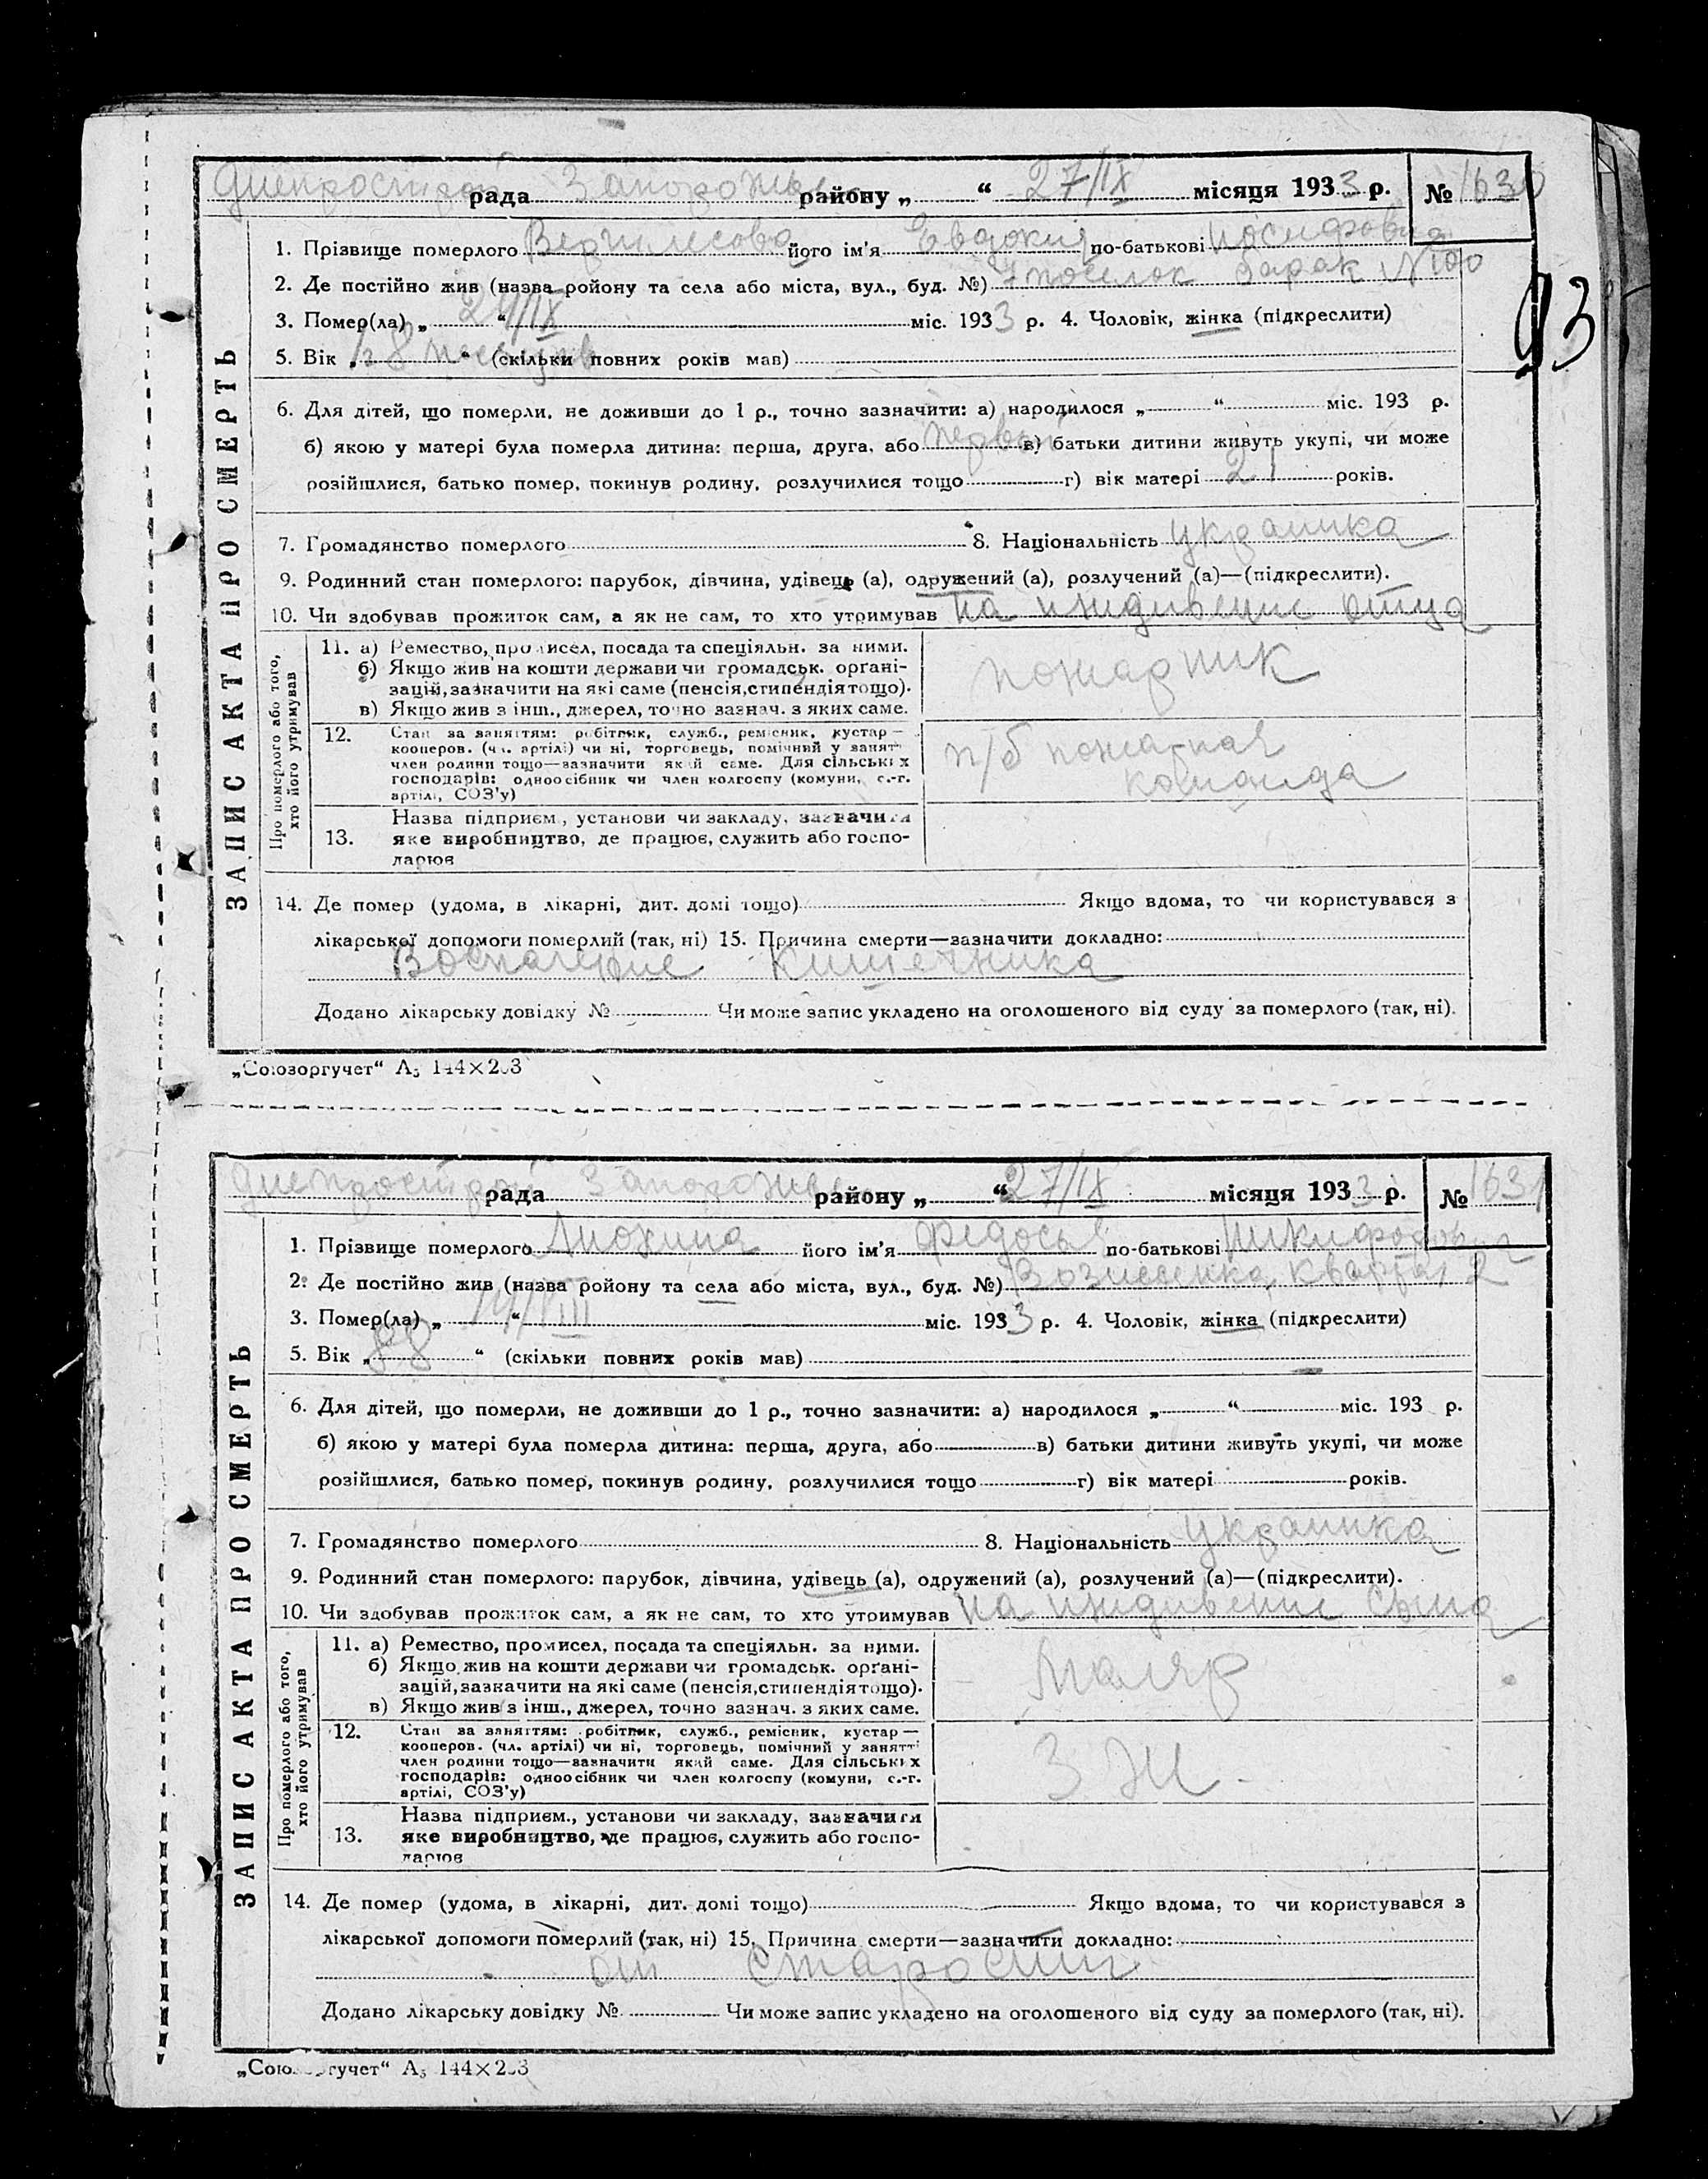 Днепрострой рада Запорожье району „ “ 27/IX місяця 1933 р. № 1630
1. Прізвище померлого його ім'я Евдокия по-батькові Иосифовна
2. Де постійно жив (назва ройону та села або міста, вул., буд. №) 7 поселок барак №100
93
3. Помер(ла) „ 24/IX “ міс. 1933 р. 4. Чоловік, жінка (підкреслити)
5. Вік „ “ (скільки повних років мав)
6. Для дітей, що померли, не доживши до 1 р., точно зазначити: а) народилося „ “ міс. 193 р.
б) якою у матері була померла дитина: перша, друга, або первый в) батьки дитини живуть укупі, чи може
розійшлися, батько помер, покинув родину, розлучилися тощо г) вік матері 21 років.
7. Громадянство померлого 8. Національність украинка
9. Родинний стан померлого: парубок, дівчина, удівець (а), одружений (а), розлучений (а)—(підкреслити).
10. Чи здобував прожиток сам, а як не сам, то хто утримував на иждивении отца
ЗАПИС АКТА ПРО СМЕРТЬ
Про померлого або того,
хто його утримував
11. а) Ремество, промисел, посада та спеціяльн. за ними.
б) Якщо жив на кошти держави чи громадськ. орґані-
зацій, зазначити на які саме (пенсія, стипендія тощо).
в) Якщо жив з інш., джерел, точно зазнач. з яких саме.
пожарник
12. Стан за заняттям: робітник, служб., ремісник, кустар—
кооперов. (чл. артілі) чи ні, торговець, помічний у занятті
член родини тощо—зазначити який саме. Для сільських
господарів: одноосібник чи член колгоспу (комуни, с.-г.
артілі, СОЗ'у)
п/б пожарная
команда
13. Назва підприєм., установи чи закладу, зазначити
яке виробництво, де працює, служить або госпо-
дарює
14. Де помер (удома, в лікарні, дит. домі тощо) Якщо вдома, то чи користувався з
лікарської допомоги померлий (так, ні) 15. Причина смерти—зазначити докладно:
Воспаление кишечника
Додано лікарську довідку № Чи може запис укладено на оголошеного від суду за померлого (так, ні).
„Союзоргучет“ А5 144×203
Днепрострой рада Запорожье району „ “ 27/IX місяця 1933 р. № 1631
1. Прізвище померлого його ім'я Федосья по-батькові Никифоровна
2. Де постійно жив (назва ройону та села або міста, вул., буд. №) Вознесенка, квартал 2
3. Помер(ла) „ 14/VIII “ міс. 1933 р. 4. Чоловік, жінка (підкреслити)
5. Вік „ 88 “ (скільки повних років мав)
6. Для дітей, що померли, не доживши до 1 р., точно зазначити: а) народилося „ “ міс. 193 р.
б) якою у матері була померла дитина: перша, друга, або в) батьки дитини живуть укупі, чи може
розійшлися, батько помер, покинув родину, розлучилися тощо г) вік матері років.
7. Громадянство померлого 8. Національність украинка
9. Родинний стан померлого: парубок, дівчина, удівець (а), одружений (а), розлучений (а)—(підкреслити).
10. Чи здобував прожиток сам, а як не сам, то хто утримував на иждивении сына
ЗАПИС АКТА ПРО СМЕРТЬ
Про померлого або того,
хто його утримував
11. а) Ремество, промисел, посада та спеціяльн. за ними.
б) Якщо жив на кошти держави чи громадськ. орґані-
зацій, зазначити на які саме (пенсія, стипендія тощо).
в) Якщо жив з інш., джерел, точно зазнач. з яких саме.
маляр
12. Стан за заняттям: робітник, служб., ремісник, кустар—
кооперов. (чл. артілі) чи ні, торговець, помічний у занятті
член родини тощо—зазначити який саме. Для сільських
господарів: одноосібник чи член колгоспу (комуни, с.-г.
артілі, СОЗ'у)
13. Назва підприєм., установи чи закладу, зазначити
яке виробництво, де працює, служить або госпо-
дарює
14. Де помер (удома, в лікарні, дит. домі тощо) Якщо вдома, то чи користувався з
лікарської допомоги померлий (так, ні) 15. Причина смерти—зазначити докладно:
от старости
Додано лікарську довідку № Чи може запис укладено на оголошеного від суду за померлого (так, ні).
„Союзоргучет“ А5 144×203